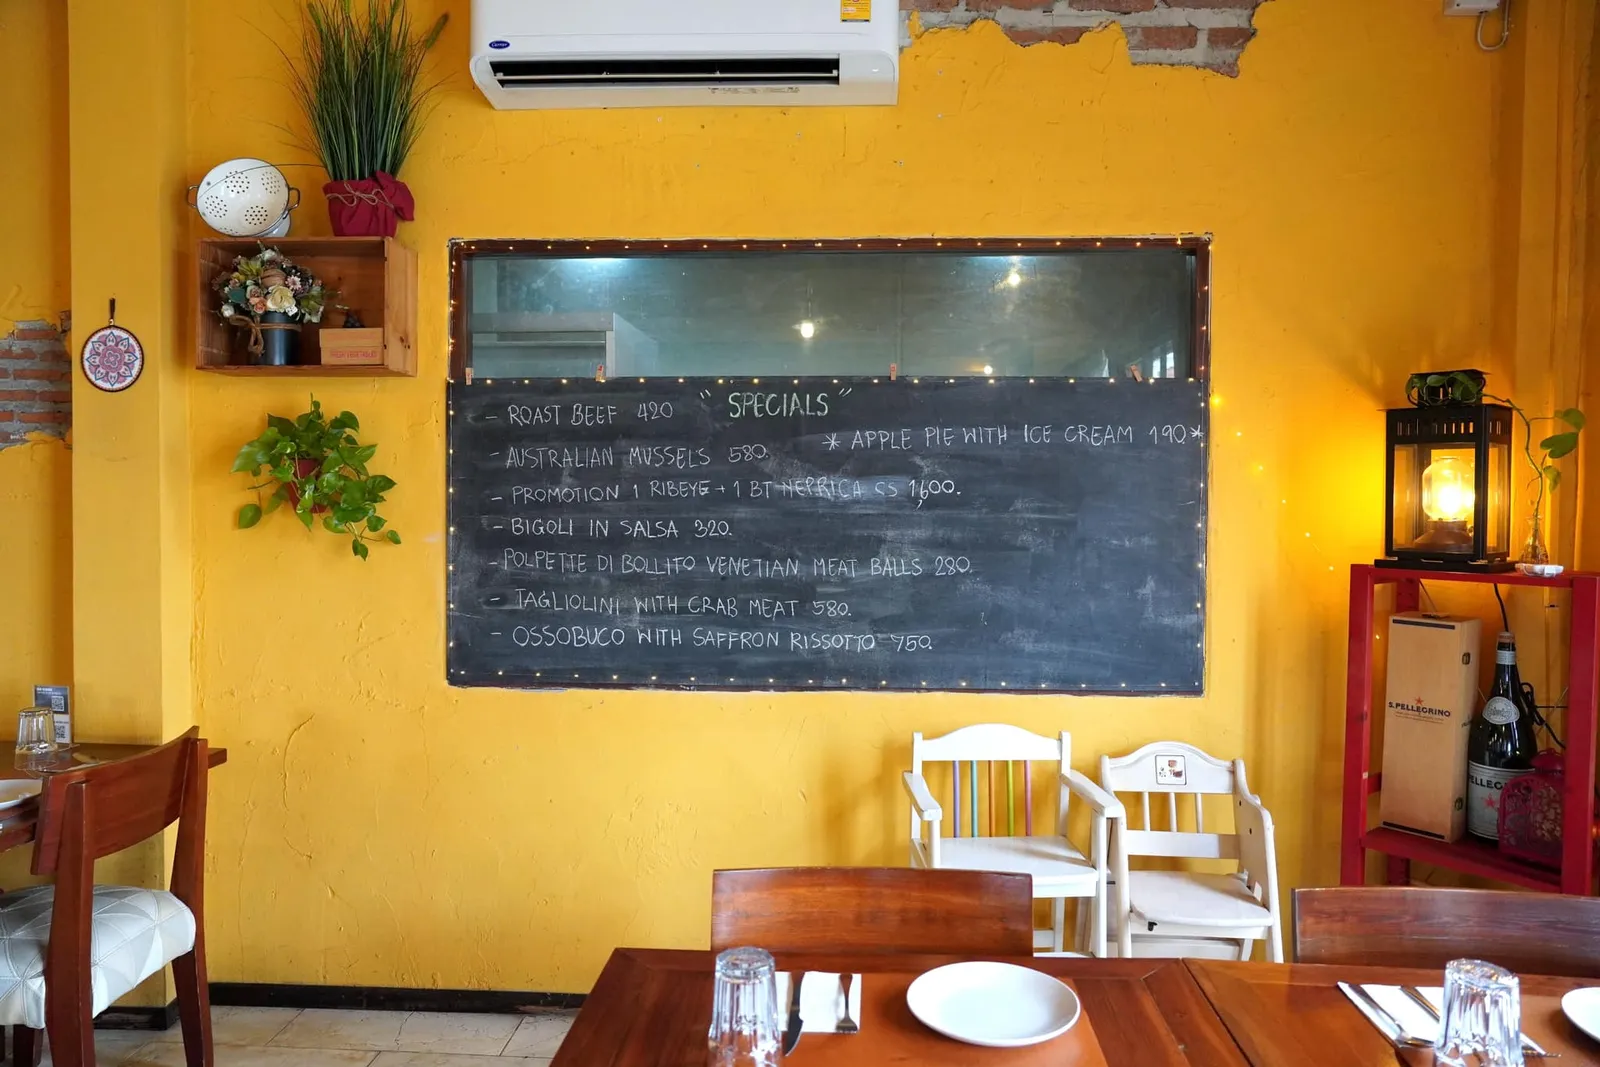 Carrier
" SPECIALS "
- ROAST BEEF 420
* APPLE PIE WITH ICE CREAM 190 *
- AUSTRALIAN MUSSELS 580.
- PROMOTION 1 RIBEYE + 1 BT CS 1,600.
- BIGOLI IN SALSA 320.
- POLPETTE DI BOLLITO VENETIAN MEAT BALLS 280.
- TAGLIOLINI WITH CRAB MEAT 580.
- OSSOBUCO WITH SAFFRON RISSOTTO 750.
S.PELLEGRINO